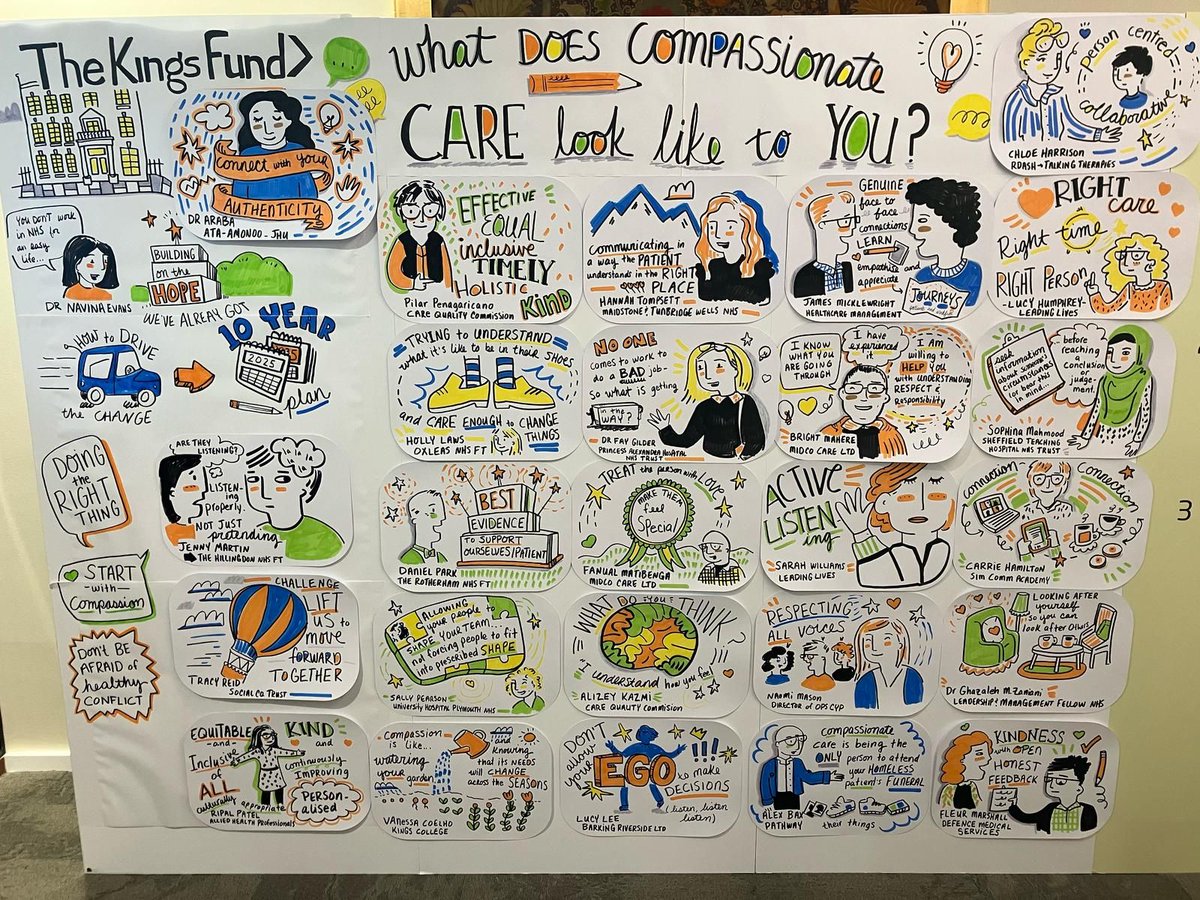 The Kings Fund>
What DOES COMPASSIONATE
CARE look like to YOU?
CONNECT with YOUR
AUTHENTICITY
DR ARABA
ATA-AMONOO - JHU
person centred
collaborative
CHLOE HARRISON
RDASH → TALKING THERAPIES
YOU DON'T WORK
IN NHS for
an easy
life...
DR NAVINA EVANS
BUILDING
on the
HOPE
WE'VE ALREAY GOT
HOW to DRIVE
the CHANGE
10 YEAR
2025
plan
DOING
the
RIGHT
THING
START
-with-
Compassion
DON'T BE
AFRAID of
healthy
CONFLICT
EFFECTIVE
EQUAL
inclusive
TIMELY
HOLISTIC
KIND
Pilar Penagaricano
CARE QUALITY COMMISSION
communicating in
a way the PATIENT
understands in the RIGHT
PLACE
HANNAH TOMPSETT
MAIDSTONE & TUNBRIDGE WELLS NHS
GENUINE
face to
face
connections
LEARN
empathise and
appreciate
JOURNEYS
JAMES MICKLEWRIGHT
HEALTHCARE MANAGEMENT
RIGHT
care
Right time
RIGHT PERSON
-LUCY HUMPHREY-
LEADING LIVES
TRYING to UNDERSTAND
what it's like to be in their SHOES
and CARE ENOUGH to CHANGE
THINGS
HOLLY LAWS
OXLEAS NHS FT
NO ONE
comes to work to
do a BAD job-
so what is getting
in the
WAY?
DR FAY GILDER
PRINCESS ALEXANDRA HOSPITAL
NHS TRUST
I KNOW
WHAT YOU
ARE GOING
THROUGH
I have
experienced
it
I am
willing to
HELP YOU
with UNDERSTANDING
RESPECT &
Responsibility
BRIGHT MAHERE
MIDCO CARE LTD
seek
information
about someone's
circumstances
bear this
in mind...
before
reaching a
conclusion or
judge-
ment.
SOPHINA MAHMOOD
SHEFFIELD TEACHING
HOSPITAL NHS TRUST
ARE THEY
LISTENING?
LISTEN-
ing
properly.
NOT JUST
pretending
JENNY MARTIN
THE HILLINGDON NHS FT
BEST
EVIDENCE
TO SUPPORT
OURSELVES/PATIENT
DANIEL PARK
THE ROTHERHAM NHS FT
TREAT the person with LOVE
MAKE THEM
feel
Special
FANUAL MATIBENGA
MIDCO CARE LTD
ACTIVE
LISTEN
ing
SARAH WILLIAMS
LEADING LIVES
connection
Connection
CARRIE HAMILTON
SIM COMM ACADEMY
CHALLENGE
LIFT
US to
move
FORWARD
TOGETHER
TRACY REID
SOCIAL CO. TRUST
ALLOWING
your people to
SHAPE YOUR TEAM
not forcing people to fit
into prescribed SHAPE
SALLY PEARSON
UNIVERSITY HOSPITAL PLYMOUTH NHS
WHAT DO YOU THINK
"I understand how you feel"
ALIZEY KAZMI
CARE QUALITY COMMISION
RESPECTING
ALL VOICES
NAOMI MASON
DIRECTOR OF OPS CYP
LOOKING AFTER
yourself
so you can
look after others
Dr Ghazaleh M. Zaniani
LEADERSHIP & MANAGEMENT FELLOW NHS
EQUITABLE
-and-
Inclusive
of
ALL
culturally appropriate
KIND
and
continuously
IMPROVING
PERSON-
alised
RIPAL PATEL
ALLIED HEALTH PROFESSIONALS
Compassion
is like...
watering
your
garden
and
knowing
that ITS NEEDS
will CHANGE
across the SEASONS
VANESSA COELHO
KINGS COLLEGE
DON'T
allow
your
EGO
to make
DECISIONS
(listen, listen
listen)
LUCY LEE
BARKING RIVERSIDE LTD
compassionate
care is being the
ONLY person to attend
your HOMELESS
patient's FUNERAL
their things
ALEX BAX
PATHWAY
KINDNESS
with OPEN
HONEST
FEEDBACK
FLEUR MARSHALL
DEFENCE MEDICAL
SERVICES
3